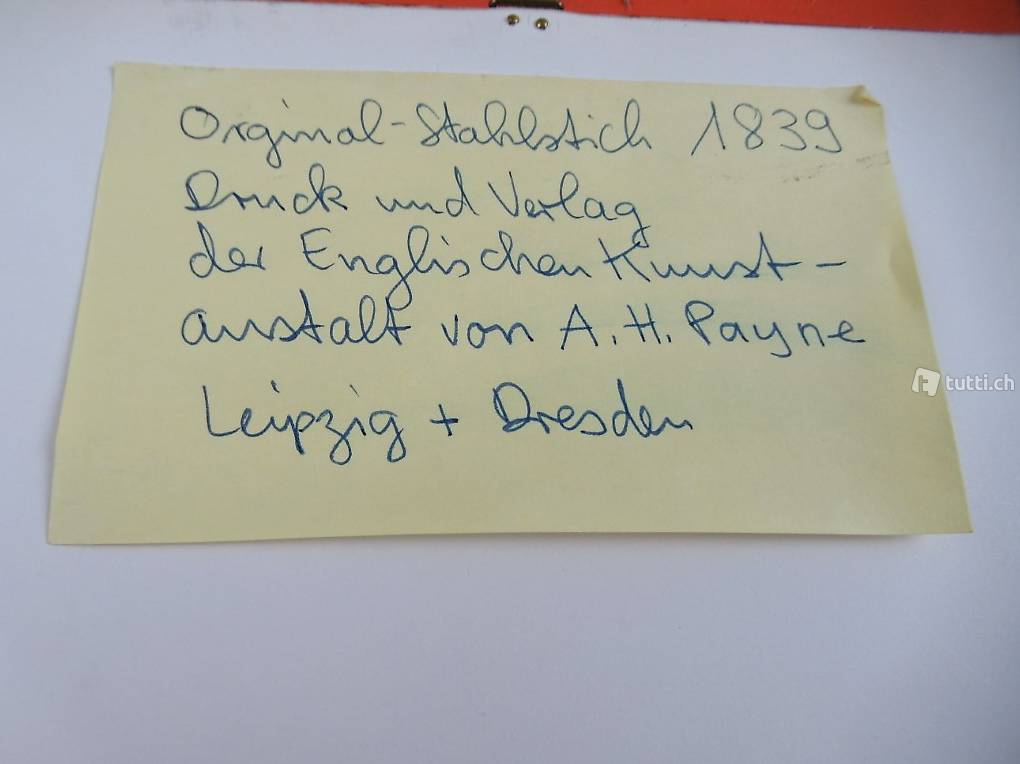 Orginal-Stahlstich 1839
Druck und Verlag
der Englischen Kunst-
anstalt von A. H. Payne
Leipzig + Dresden
tutti.ch